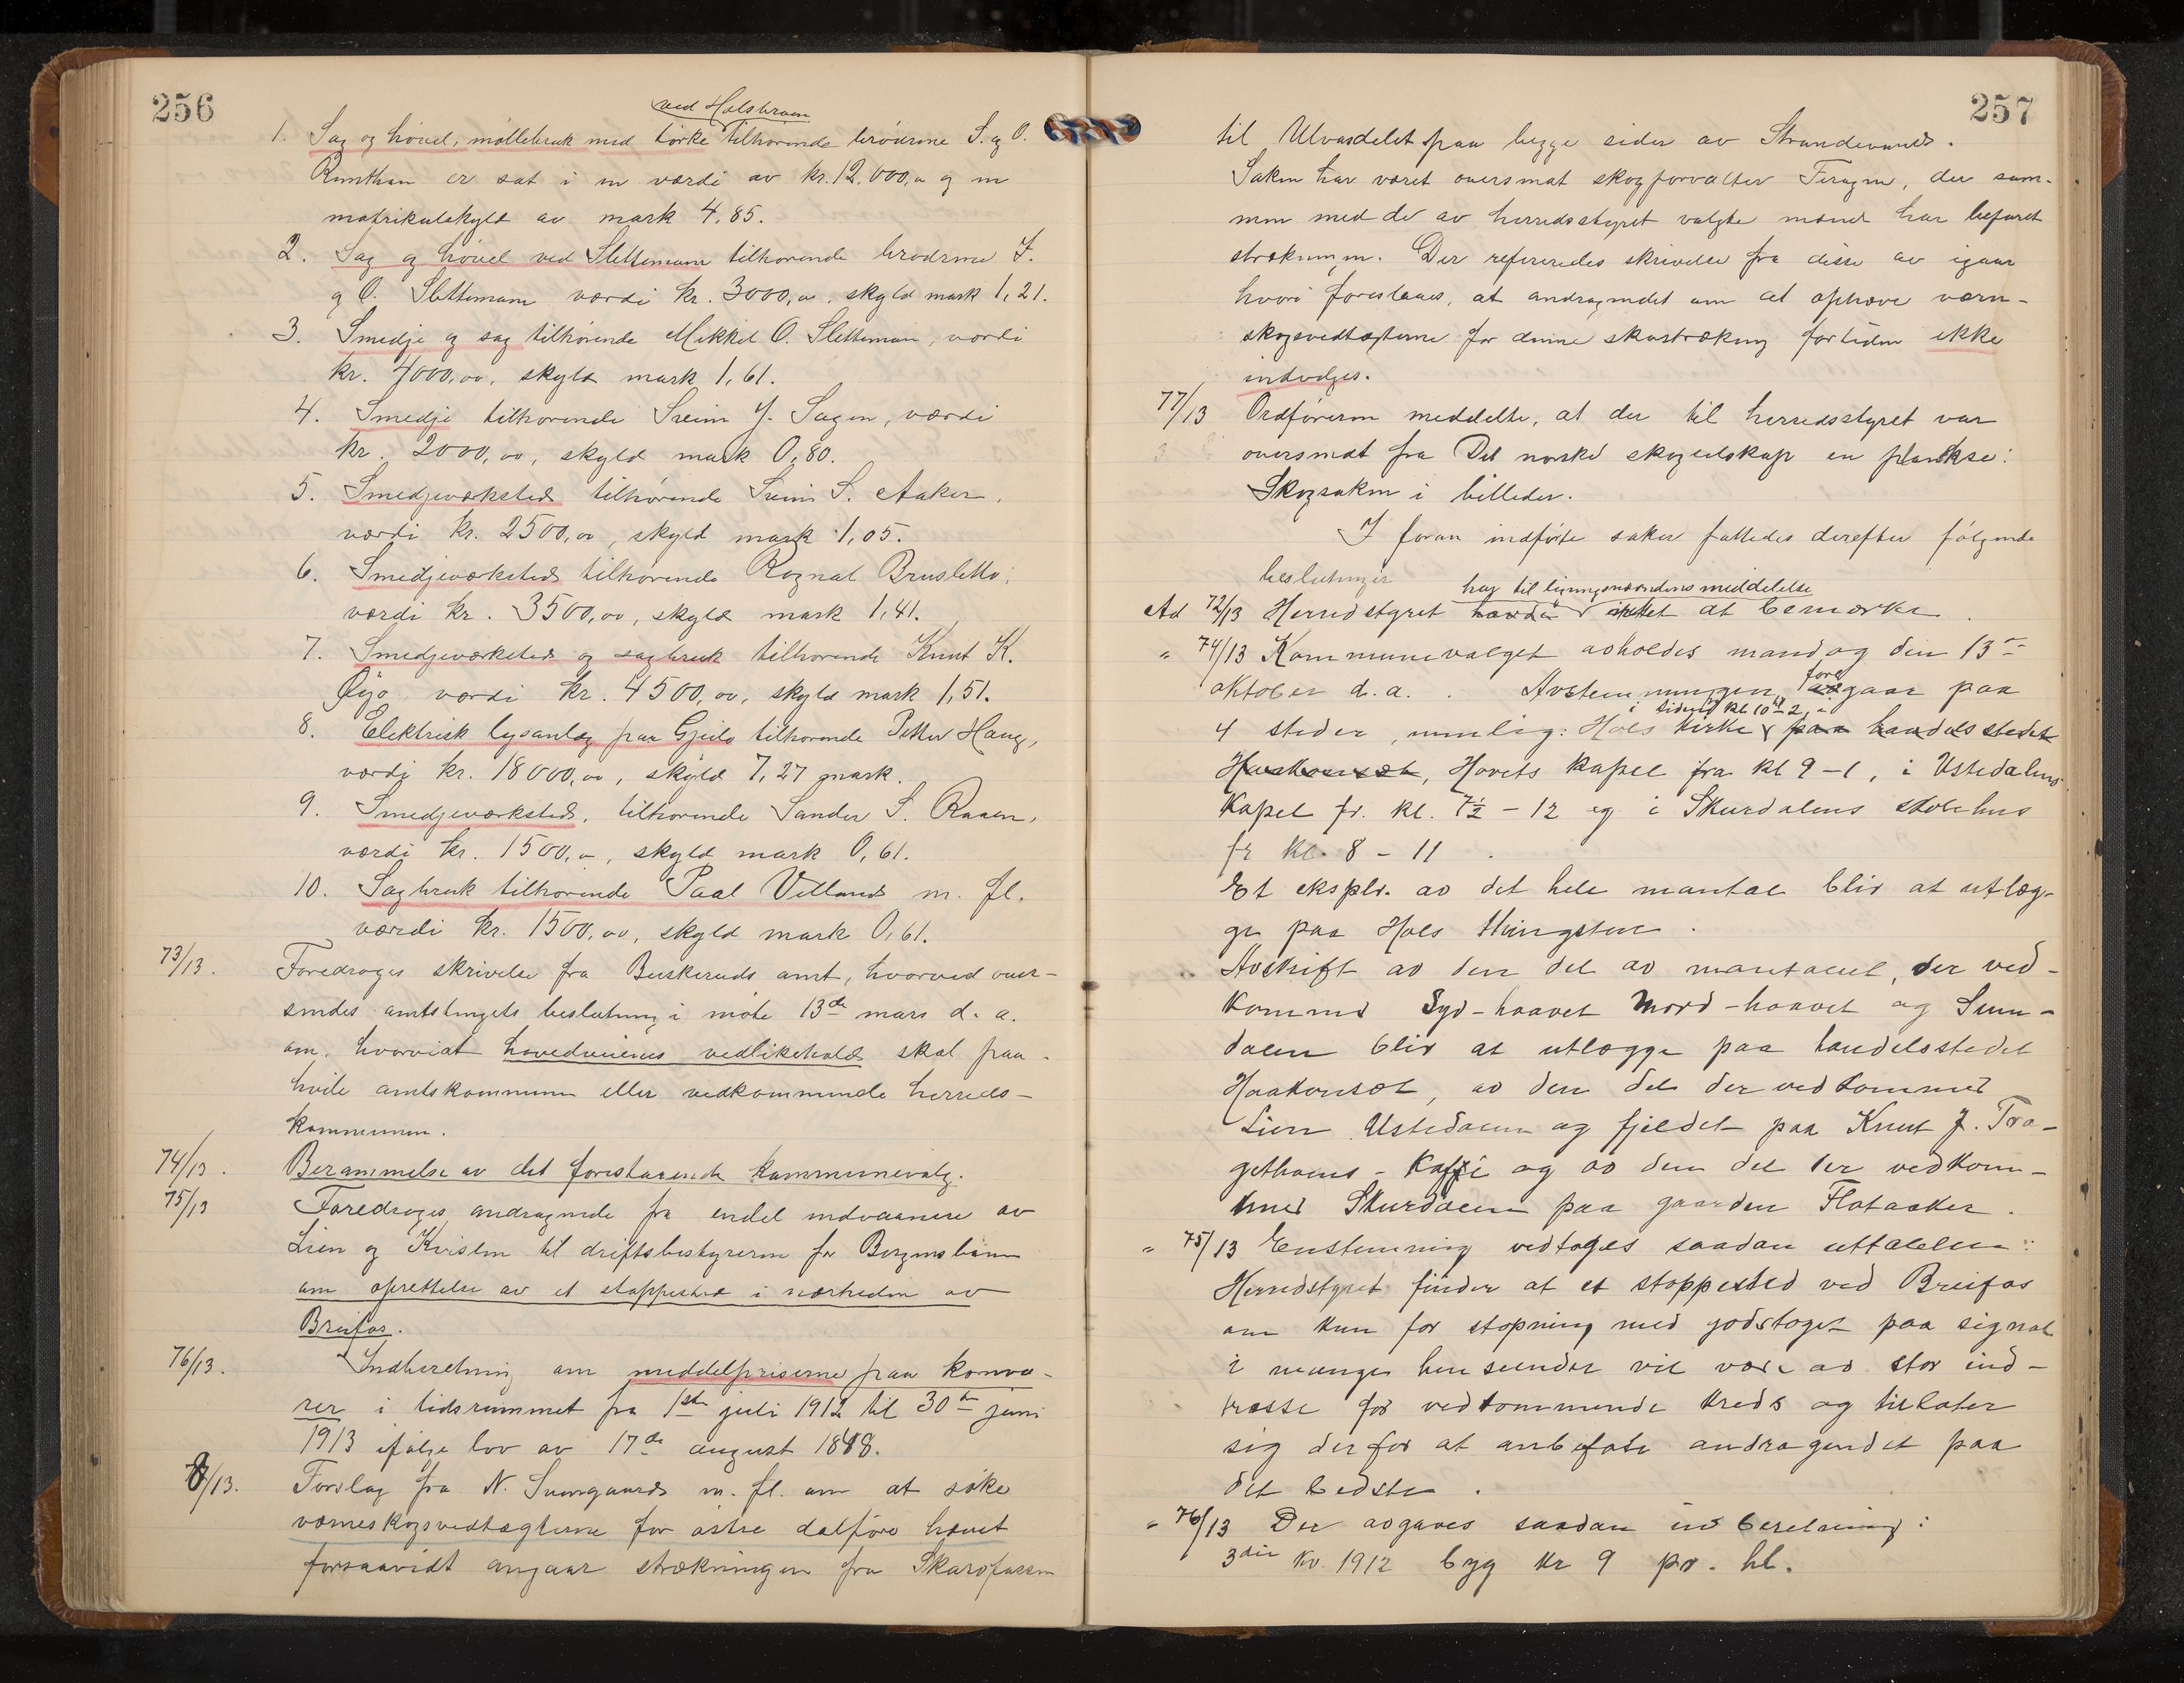 256
ved Holsbroen
1. Sag og hövel, möllebruk med törke tilhörende brödrene S. og O.
er sat i en værdi av kr. 12.000,00 og en
matrikulskyld av mark 4,85.
2. Sag og hövel ved Slettemoen tilhörende brödrene
og O. Slettemoen værdi kr. 3000,00, skyld mark 1,21.
3. Smedje og sag tilhörende Mikkel O. Slettemoen, værdi
kr. 4000,00, skyld mark 1,61.
4. Smedje tilhörende Svein Sagen, værdi
kr. 2000,00, skyld mark 0,80.
5. Smedjeværksted tilhörende Svein S. Aaker,
værdi kr. 2500,00, skyld mark 1,05.
6. Smedjeværksted tilhörende Rognal Brusletto,
værdi kr. 3500,00, skyld mark 1,41.
7. Smedjeværksted og sagbruk tilhörende Knut K.
Öyo værdi kr. 4500,00, skyld mark 1,51.
8. Elektrisk lysanlæg paa Gjeilo tilhörende Petter Haug,
værdi kr. 18000,00, skyld 7,27 mark.
9. Smedjeværksted, tilhörende Sander S. Raaen,
værdi kr. 1500,00, skyld mark 0,61.
10. Sagbruk tilhörende Paal Villand m. fl.
værdi kr. 1500,00, skyld mark 0,61.
73/13. Foredroges skrivelse fra Buskeruds amt, hvorved over-
sendes amtstingets beslutning i möte 13de mars d. a.
om, hvorvidt hovedveienes vedlikehold skal paa-
hvile amtskommunen eller vedkommende herreds-
kommunen.
74/13. Berammelse av det forestaaende kommunevalg.
75/13 Foredroges andragende fra endel indvaanere av
Lien og Kvislen til driftsbestyreren for Bergensbanen
om oprettelse av et stoppested i nærheden av
Breifos.
76/13. Indberetning om middelpriserne paa kornva-
rer i tidsrummet fra 1ste juli 1912 til 30te juni
1913 ifölge lov av 17de august 1848.
/13. Forslag fra N. Sungaard m. fl. om at söke
værneskogsvedtægterne for östre dalföre hævet
forsaavidt angaar strækningen fra Skarsfossen
257
til Ulvasdelet paa begge sider av Strandevand.
Saken har været oversendt skogforvalter Firagen, der sam-
men med de av herredsstyret valgte mænd har befaret
strækningen. Der refereredes skrivelse fra disse av igaar
hvori foreslaaes, at andragendet om at ophæve værn-
skogsvedtægterne for denne skostrækning fortiden ikke
indvilges.
77/13 Ordföreren meddelte, at der til herredsstyret var
oversendt fra Det norske skogselskap en planksе:
Skogsaken i billeder.
I foran indförte saker fattedes derefter fölgende
beslutninger
hag til ligningsnævndens meddelelse
Ad 72/13 Herredstyret havde intet at bemærke.
" 74/13 Kommunevalget avholdes mandag den 13de
fore
oktober d. a. Avstemningen avgaar paa
i tiden kl 10-2,
4 steder, nemlig: Hols kirke paa handelsstedet
Haakonset, Hovets kapel fra kl 9-1, i Ustedalens
kapel fr. kl. 7½ - 12 og i Skurdalens skolehus
fr kl. 8 - 11.
Et eksplr. av det hele mantal blir at utlæg-
ge paa Hols thingstue.
Avskrift av den del av mantallet, der ved-
kommer Syd-haavet Nord-haavet og Sun-
dalen blir at utlægge paa handelsstedet
Haakonset, av den del der vedkommer
Lien Ustedalen og fjeldet paa Knut J. Tra-
gethons - Kaffi og av den del der vedkom-
mer Skurdalen paa gaarden Flataaker.
" 75/13 Enstemmig vedtoges saadan uttalelse:
Herredstyret finder at et stoppested ved Breifos
om kun for stopning med godstoget paa signal
i mange henseender vil være av stor ind-
tresse for vedkommende kreds og tillater
sig derfor at anbefale andragendet paa
det bedste.
" 76/13 Der avgaves saadan indberetning:
3die kv. 1912 byg kr 9 pr. hl.